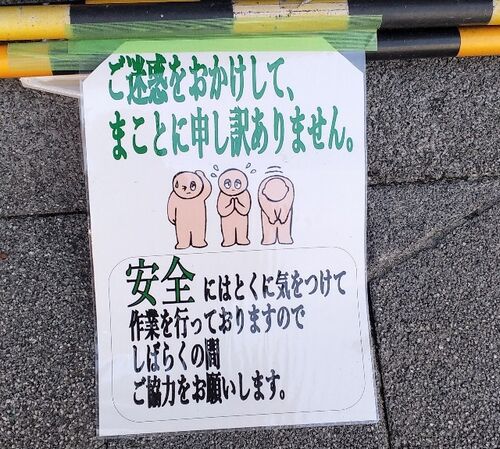 ご迷惑をおかけして、
まことに申し訳ありません。
安全にはとくに気をつけて
作業を行っておりますので
しばらくの間
ご協力をお願いします。